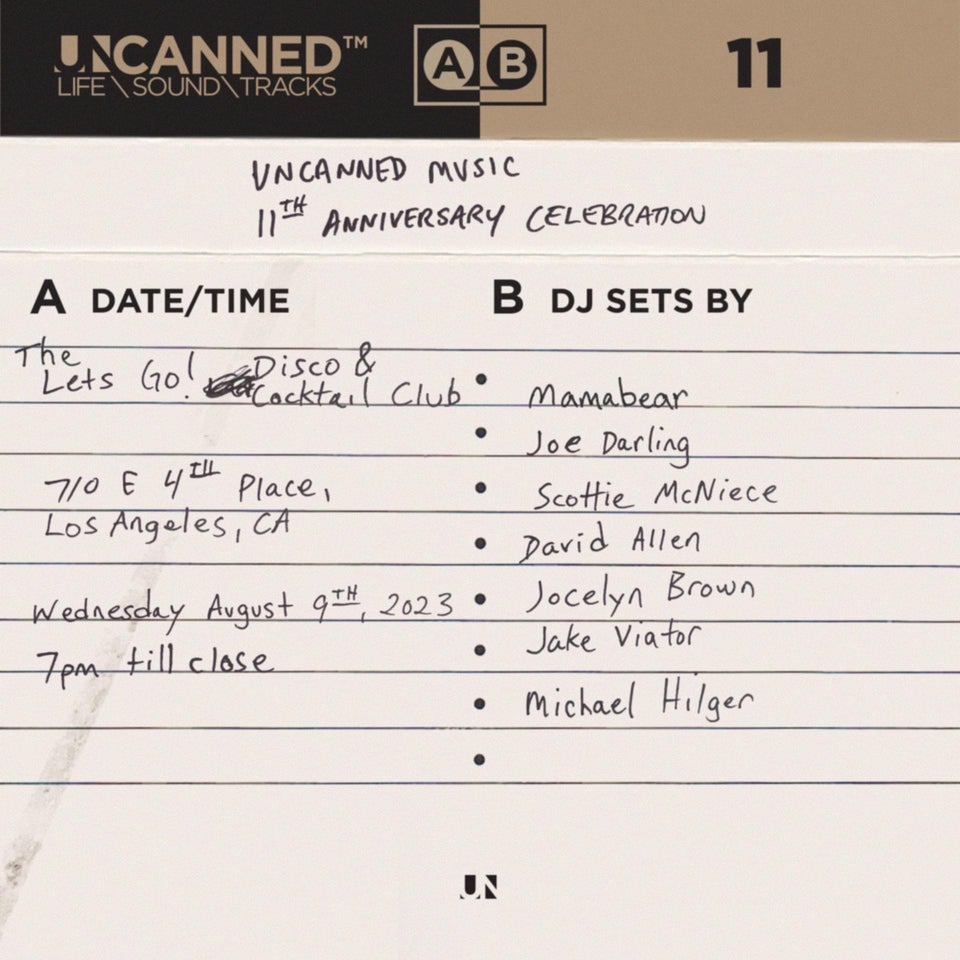 UNCANNED™
LIFE\SOUND\TRACKS
A B
11
UNCANNED MUSIC
11TH ANNIVERSARY CELEBRATION
A DATE/TIME
The
Lets Go! Disco &
Cocktail Club
710 E 4TH Place,
Los Angeles, CA
Wednesday August 9TH, 2023
7pm till close
B DJ SETS BY
• Mamabear
• Joe Darling
• Scottie McNiece
• David Allen
• Jocelyn Brown
• Jake Viator
• Michael Hilger
•
UN